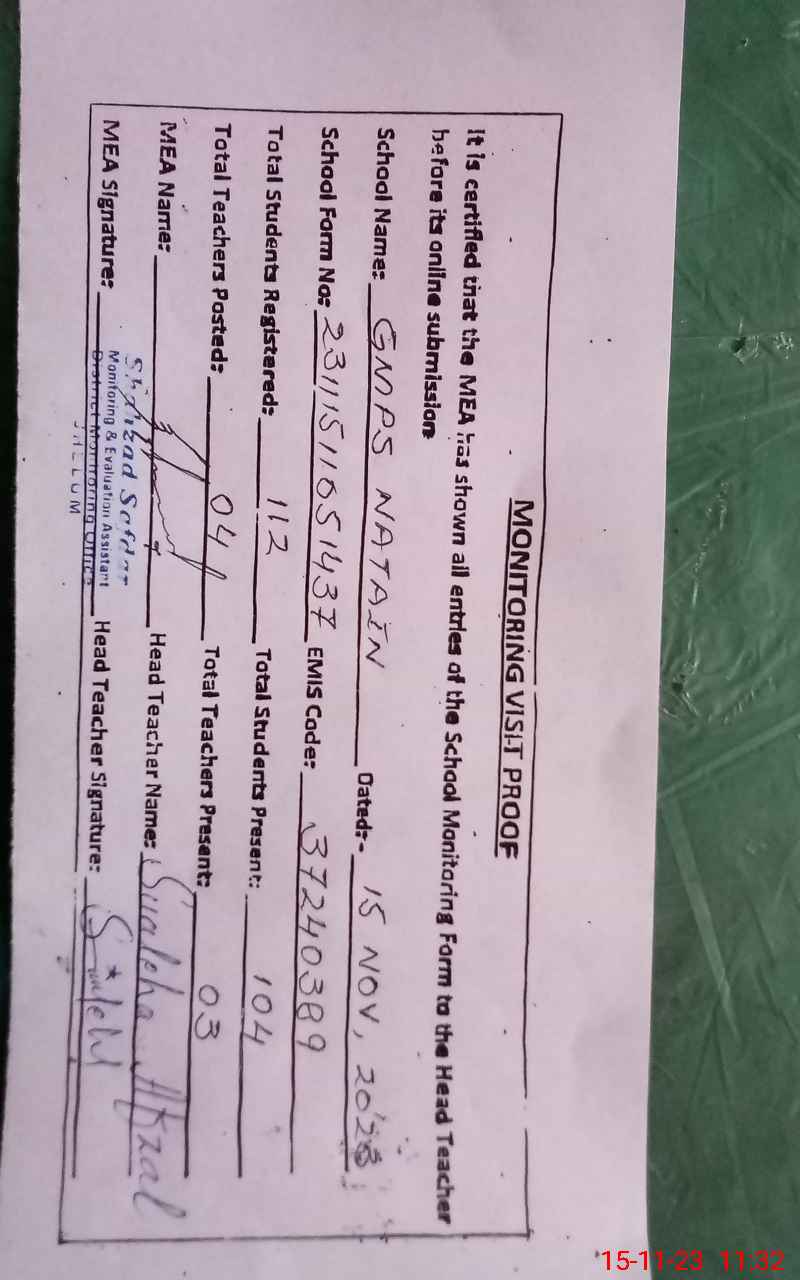 MONITORING VISIT PROOF
It is certified that the MEA has shown all entries of the School Monitoring Form to the Head Teacher
before its online submission
School Name: GMPS NATAIN Dated:- 15 NOV, 2023
School Form No: 23111511051437 EMIS Code: 37240389
Total Students Registered: 112 Total Students Present: 104
Total Teachers Posted: 04 Total Teachers Present: 03
MEA Name: Head Teacher Name: Sualeha Afzal
MEA Signature: Head Teacher Signature:
Shahzad Safdar
Monitoring & Evaluation Assistant
District Monitoring Office
JHELUM
15-11-23 11:32